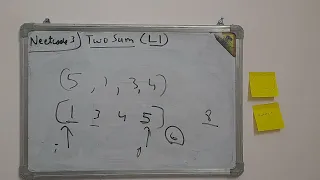 Neetcode 3) Two Sum (L1)
(5, 1, 3, 4)
[1 3 4 5] 8
i j 6